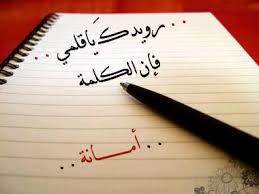 .. رويدك يا قلمي ..
فإن الكلمة
.. أمـــانة ..